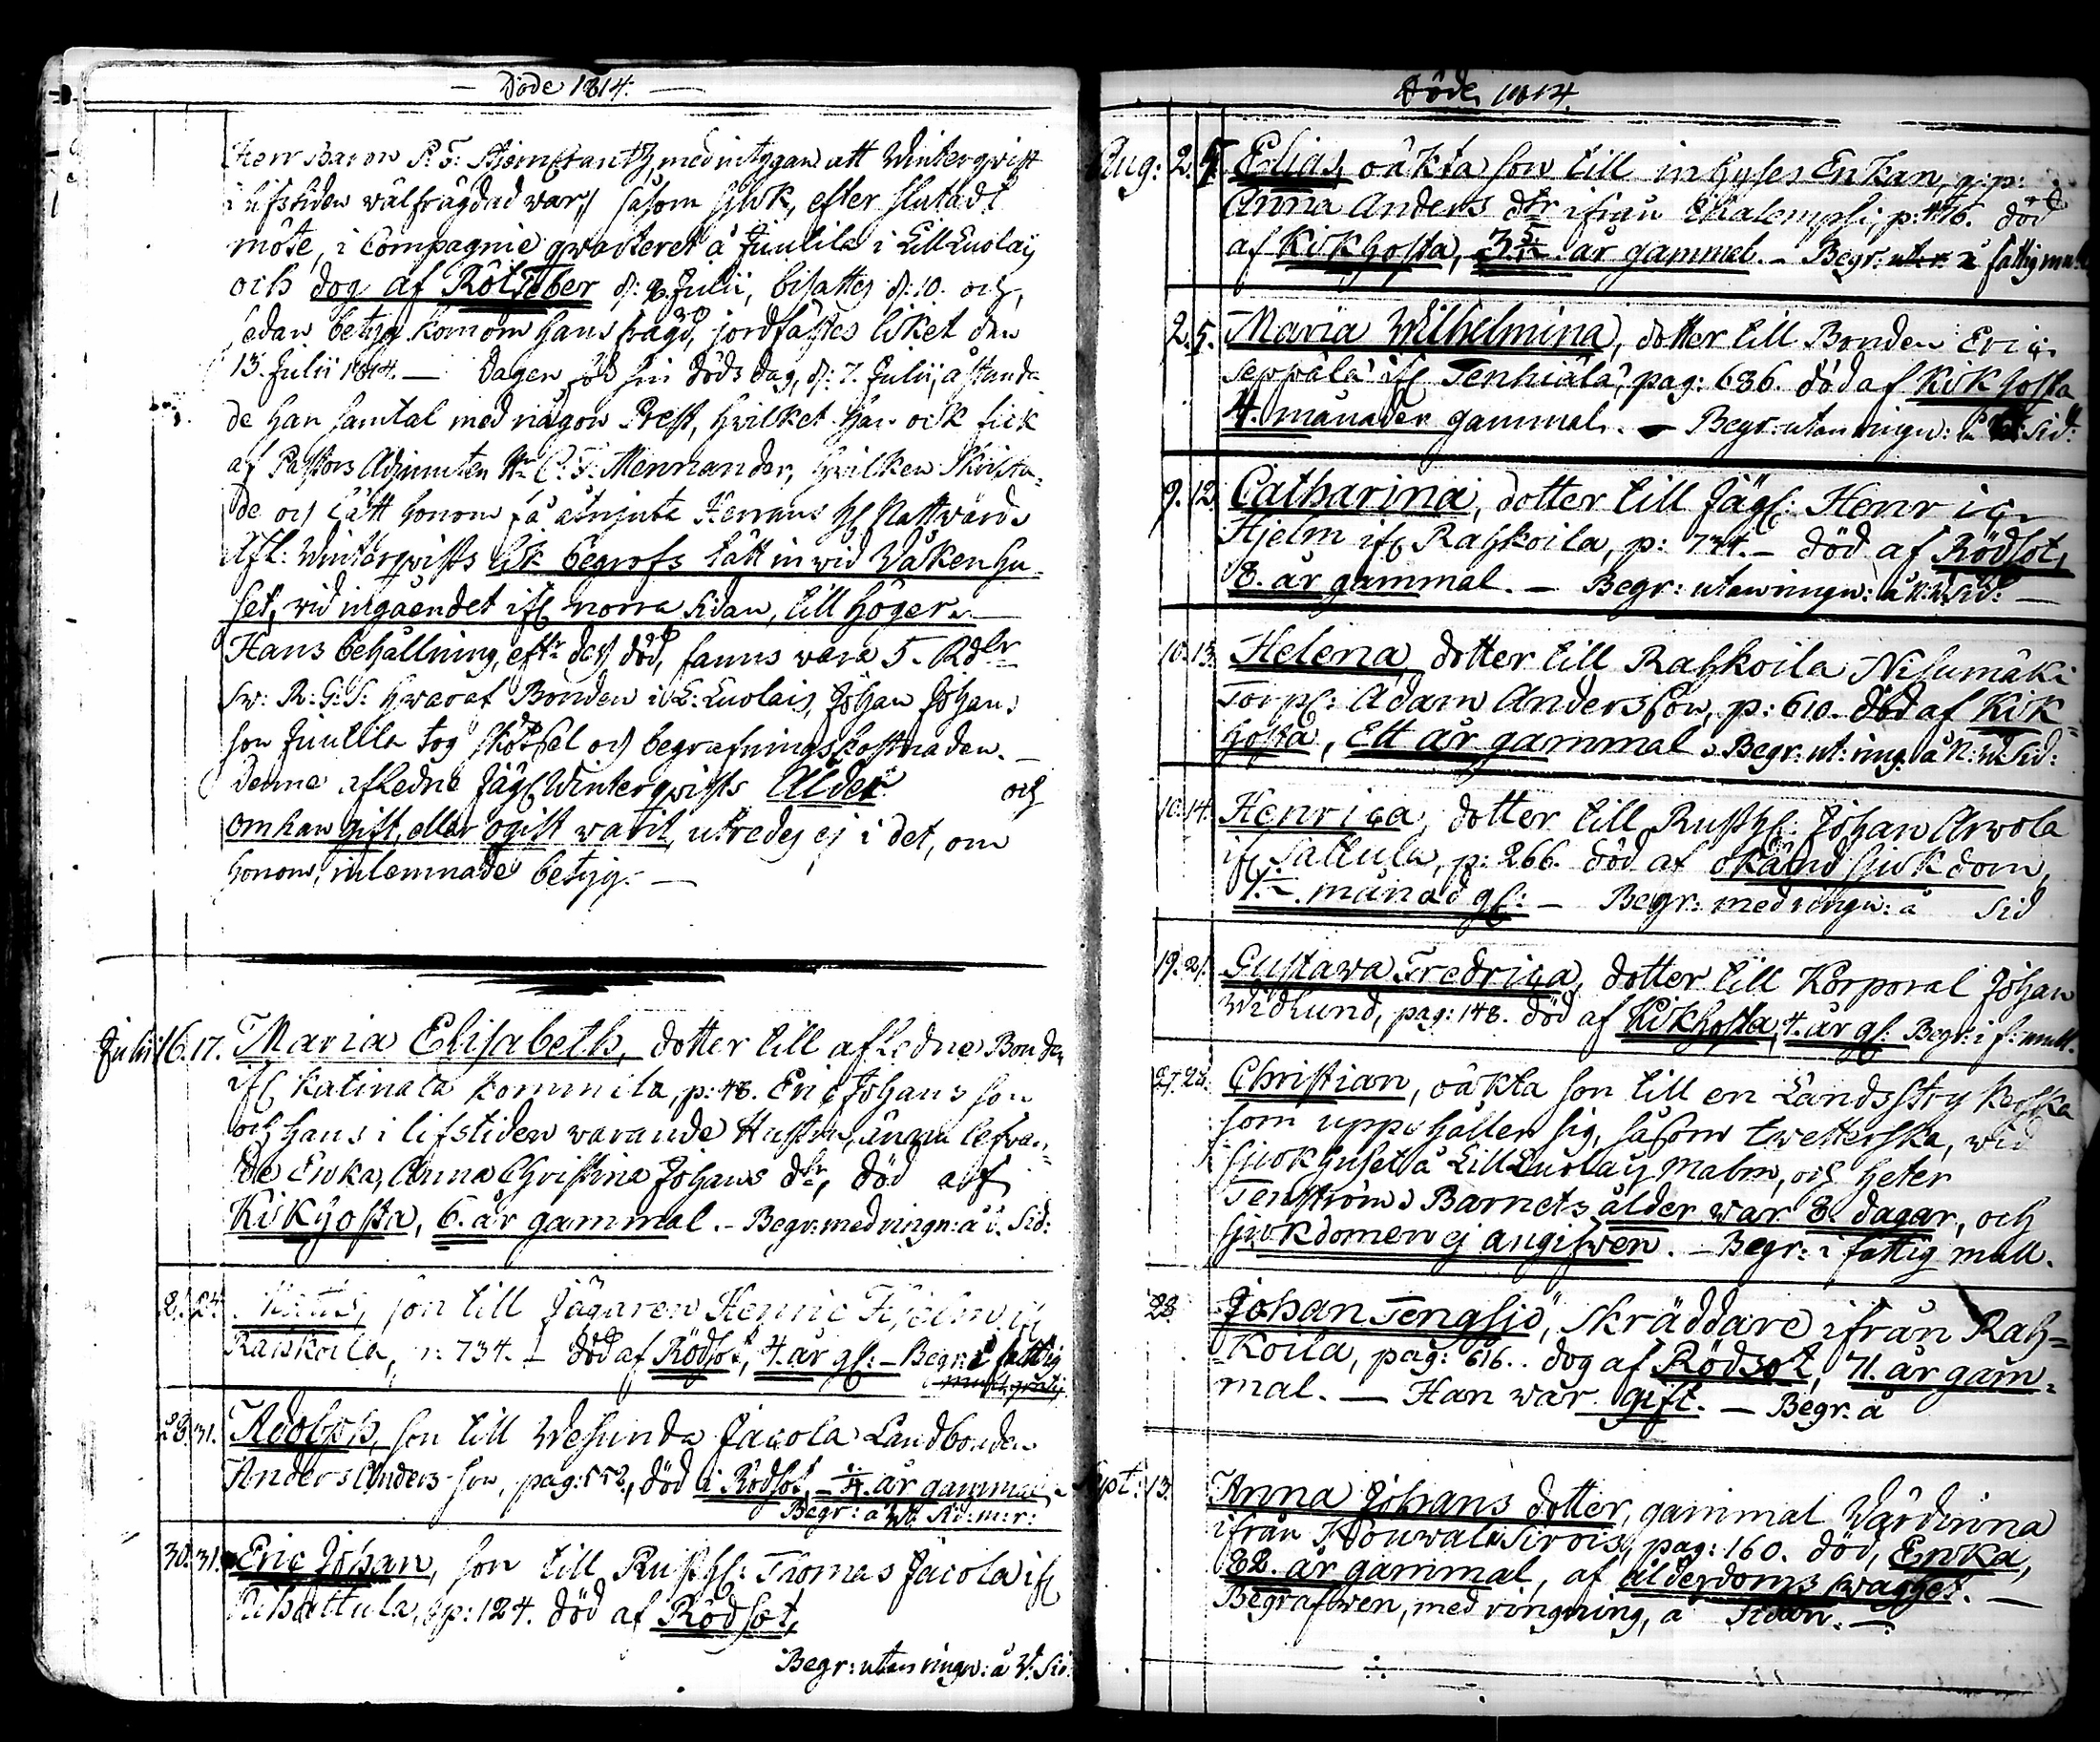 Döde 1814.
Herr Baron P. F. Stjerncrantz, med intygan att Winterqvist
i lifstiden wälfrägdad war, såsom sjuk, efter slutadt
möte, i Compagnie qwarteret å Juulila i Lill Luolais
och dog af Rötfeber d: 8. Julii, bisattes d: 10. och,
sedan betyg kom om hans frägd, jordfästes liket den
13. Julii 1814. — Dagen för sin döds dag, d: 7. Julii, åstunda
de han samtal med någon Prest, hvilket han ock fick
af Pastors Adjuncten Hr C: F: Mennander, hvilken skrifta-
de och lätt honom få åtnjuta Herrans H: Nattward.
Afl: Winterqvists lik begrofs tätt inwid Wåkenhu-
set, wid ingåendet ifr norra sidan, till höger.
Hans behållning, eftr dess död, fanns wara 5. Rdlr
Sw: R: G: S: hwaraf Bonden i L: Luolais, Johan Johans
son Juulila tog skötsel och begrafningskostnaden. —
Denne afledne Jäg: Winterqvists Ålder och
om han gift, eller ogift warit, utredes ej i det, om
honom, inlemnade betyg. —
Julii 16. 17. Maria Elisabeth, dotter till afledne Bonden
ifr Katinala Kommila, p: 48. Eric Johans son
och hans i lifstiden warande Hustru, ännu lefwan-
de Enka, Anna Christina Johans dtr, död af
Kikhosta, 6. år gammal. - Begr: med ringn: å ö. Sid:
21. 24. son till Jägaren Henric Hjelm ifr
Rahkoila, p: 734. - död af Rödsot, 4. år gl: - Begr: i fattig
28. 31. Adolph, son till Wesunda Jacola Landbonden
Anders Anders son, pag: 552, död i Rödsot, år gammal.
Begr: å W. Sid: m: r:
30. 31. Eric Johan, son till Rusth: Thomas Jacola ifr
Rihattula, p: 124. död af Rödsot,
Begr: utan ringn: å W: Sid:
Döde 1814.
Aug: 2. 4. Elias, oäkta son till inhyses Enkan, q: p:
Anna Anders dtr ifrån p: 476. död
af Kikhosta, 3 5/12 år gammal. - Begr: å fattig mull
2. 5. Maria Wilhelmina, dotter till Bonden Eric
Seppälä ifr Tenhiälä, pag: 636. död af Kikhosta
4. månader gammal. - Begr: utan ringn: Sid:
9. 12. Catharina, dotter till Jäg: Henric
Hjelm ifr Rahkoila, p: 734. - död af Rödsot,
8. år gammal. - Begr: utan ringn: å n: w. Sid: —
10. 13. Helena, dotter till Rahkoila Nisumäki
Torp: Adam Andersson, p: 610. död af Kik
hosta, Ett år gammal. Begr: ut: ring. å N: W. Sid:
10. 14. Henrica, dotter till Rusth: Johan Arwola
ifr Sattula, p: 266. död af okänd sjukdom,
1. månad gl: — Begr: med ringn: å Sid
19. 21. Gustawa Fredrica, dotter till Korporal Johan
Widlund, pag: 148. död af Kikhosta, 4. år gl: Begr: i f: mull.
27. 28. Christian, oäkta son till en Landsstrykerska
som uppehåller sig, såsom twetterska, wid
sjukhuset å Lill Luolais malm, och heter
Tengström. Barnets ålder war 8. dagar, och
sjukdomen ej angifwen. - Begr: i fattig mull.
28. Johan Tengsjö, Skräddare ifrån Rah=
koila, pag: 616. dog af Rödsot, 71. år gam=
mal. — Han war gift. — Begr: å
Sept: 13. Anna Johans dotter, gammal Wärdinna
ifrån Sirois, pag: 160. död, Enka,
82. år gammal, af ålderdoms swaghet. —
Begrafwen, med ringning, å Sidan. —